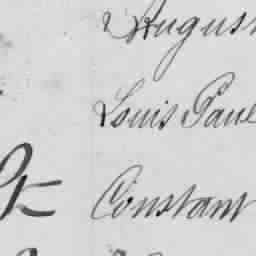 August
Louis Paul
Constant